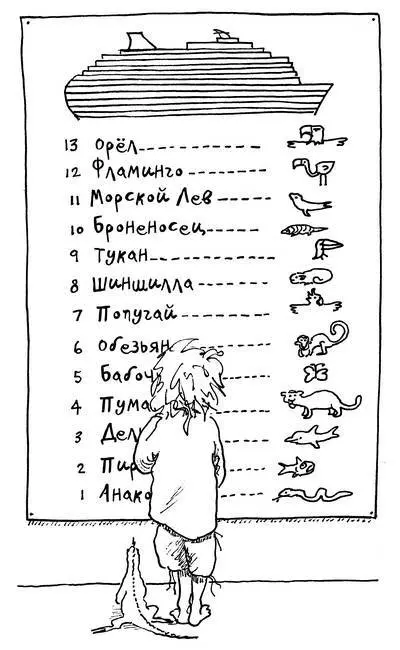 13 Орёл
12 Фламинго
11 Морской Лев
10 Броненосец
9 Тукан
8 Шиншилла
7 Попугай
6 Обезьян
5 Бабоч
4 Пума
3 Дел
2 Пир
1 Анако